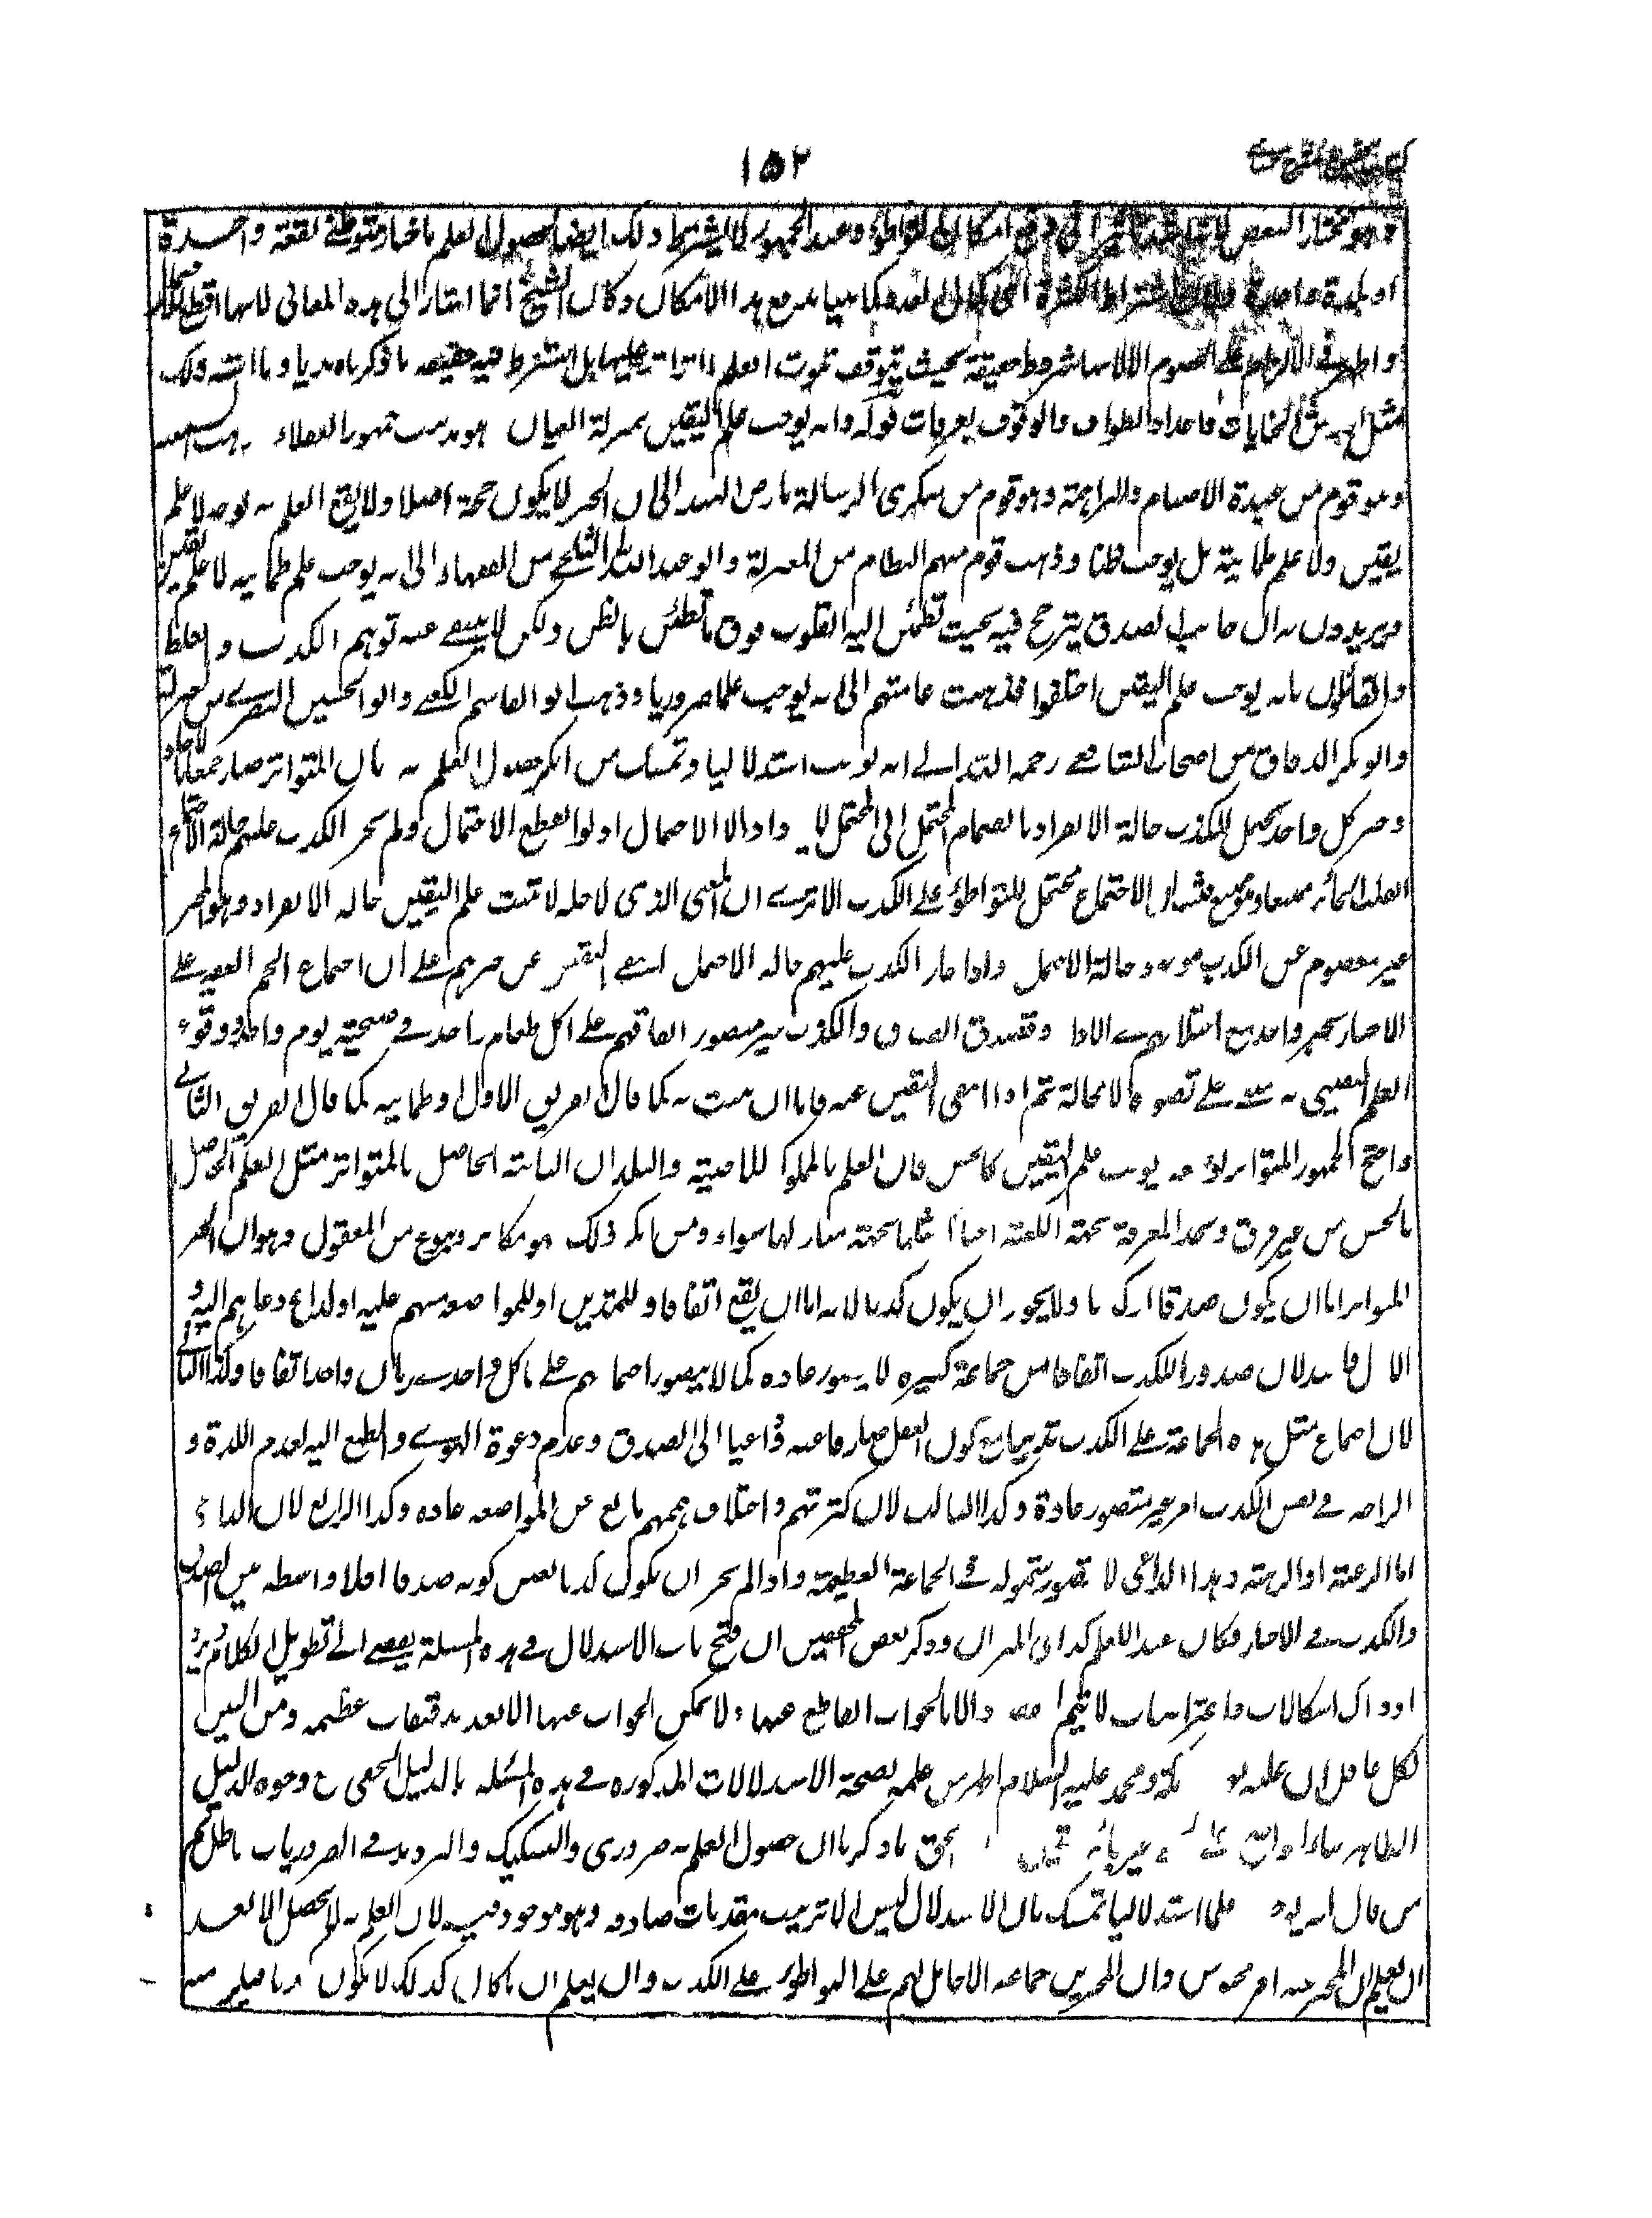 ١٥٢
وهو مختار البعض لان هذا اشد تاثيرا فى دفع امكان التواطؤ وعند الجمهور لا يشترط ذلك ايضا لحصول العلم باخبار متوطنى بقعة واحدة
او بلدة واحدة ولان اشتراط الكثرة الى كمال العدد كما بينا يدفع هذا الامكان وكان الشيخ انما اشار الى هذه المعانى لانها اقطع للاحتمال
واظهر فى الالزام على الخصوم لا لانها شروط حقيقة بحيث يتوقف ثبوت العلم بالتواتر عليها بل الشرط فيه حقيقة ما ذكرناه بديا وما اشبه ذلك
مثل اروش الجنايات واعداد الطواف والوقوف بعرفات قوله وانه يوجب علم اليقين بمنزلة العيان هو مذهب جمهور العقلاء وذهب السمنية
وهو قوم من عبدة الاصنام والبراهمة وهو قوم من منكرى الرسالة بارض الهند الى ان الخبر لا يكون حجة اصلا ولا يقع العلم به بوجه لا علم
يقين ولا علم طمانية بل يوجب ظنا وذهب قوم منهم النظام من المعتزلة وابو عبد الله الثلجى من الفقهاء الى انه يوجب علم طمانية لا علم يقين
ويريدون به ان جانب الصدق يترجح فيه بحيث تطمئن اليه القلوب فوق ما تطمئن بالظن ولكن لا ينتفى عنه توهم الكذب والغلط
والقائلون بانه يوجب علم اليقين اختلفوا فذهبت عامتهم الى انه يوجب علما ضروريا وذهب ابو القاسم الكعبى وابو الحسين البصرى من المعتزلة
وابو بكر الدقاق من اصحاب الشافعى رحمه الله الى انه يوجب علما استدلاليا وتمسك من انكر حصول العلم به بان المتواتر صار جمعا بالآحاد
وخبر كل واحد محتمل للكذب حالة الانفراد وبانضمام المحتمل الى المحتمل لا يزداد الا الاحتمال اذ لو انقطع الاحتمال ولم يجز الكذب عليهم حالة الاجتماع
انقلب الجائز ممتنعا وهو ممتنع الاجتماع محتمل للتواطؤ على الكذب الا ترى ان المعنى الذى لاجله لا يثبت علم اليقين حالة الانفراد وهو كون المخبر
غير معصوم عن الكذب موجود حالة الاجتماع واذا جاز الكذب عليهم حالة الاجتماع انتفى اليقين عن خبرهم على ان اجتماع الجم الغفير على
الاخبار بخبر واحد مع اختلافهم فى الاراء وقصدى الصدق والكذب غير متصور كاتفاقهم على اكل طعام واحد فى صبيحة يوم واحد ووقوع
العلم اليقينى به مبنى على تصوره لا محالة ثم اذا انتفى اليقين عنه فاما ان يثبت به ظن كما قال الفريق الاول او طمانية كما قال الفريق الثانى
واحتج الجمهور المتواتر يوجب علم اليقين كالحس فان العلم بالملوك الماضية والبلدان النائية الحاصل بالمتواتر مثل العلم الحاصل
بالحس من غير فرق ونجد المعرفة بجهة الكعبة اخبارا مثلها بجهة منازلنا سواء ومن انكر ذلك فهو مكابر وبنوع من المعقول وهو ان الخبر
المتواتر اما ان يكون صدقا او كذبا ولا يجوز ان يكون كذبا لانه اما ان يقع اتفاقا او للتدين او للمواضعة منهم عليه او لداع دعاهم اليه و
الاول فاسد لان صدور الكذب اتفاقا من جماعة كثيرة لا يتصور عادة كما لا يتصور اجتماعهم على ماكل واحد فى زمان واحد اتفاقا وكذا الثانى
لان اجتماع مثل هذه الجماعة على الكذب تدينا مع كون العقل صارفا عنه وداعيا الى الصدق وعدم دعوة الهوى والطبع اليه لعدم اللذة و
الراحة فى نفس الكذب امر غير متصور عادة وكذا الثالث لان كثرتهم واختلاف هممهم مانع عن المواضعة عادة وكذا الرابع لان الداعى
اما الرغبة او الرهبة وهذا الداعى لا يتصور شموله فى الجماعة العظيمة واذا لم يجز ان يكون كذبا تعين كونه صدقا اذ لا واسطة بين الصدق
والكذب فى الاخبار فكان مفيدا للعلم كذا فى الميزان وذكر بعض المحققين ان فتح باب الاستدلال فى هذه المسئلة يفضى الى تطويل الكلام ويرد
اشكالات واعتراضات لا يتم المقصود الا بالجواب القاطع عنها ولا يمكن الجواب عنها الا بعد تدقيقات عظيمة ومن البين
لكل عاقل ان علمه بوجود مكة ومحمد عليه السلام اظهر من علمه بصحة الاستدلالات المذكورة فى هذه المسئلة والدليل الخفى مع وجود الدليل
الظاهر بناء الواضح على الخفى وغير جائز فتبين ان الحق ما ذكرنا ان حصول العلم به ضرورى والتشكيك والترديد فى الضروريات باطل ثم
من قال انه يوجب علما استدلاليا تمسك بان الاستدلال ليس الا ترتيب مقدمات صادقة وهو موجود فيه لان العلم به لا يحصل الا بعد
ان يعلم ان المخبر عنه امر محسوس وان المخبرين جماعة لا حامل لهم على التواطؤ على الكذب وان يعلم ان ما كان كذلك لا يكون كذبا فيلزم منه